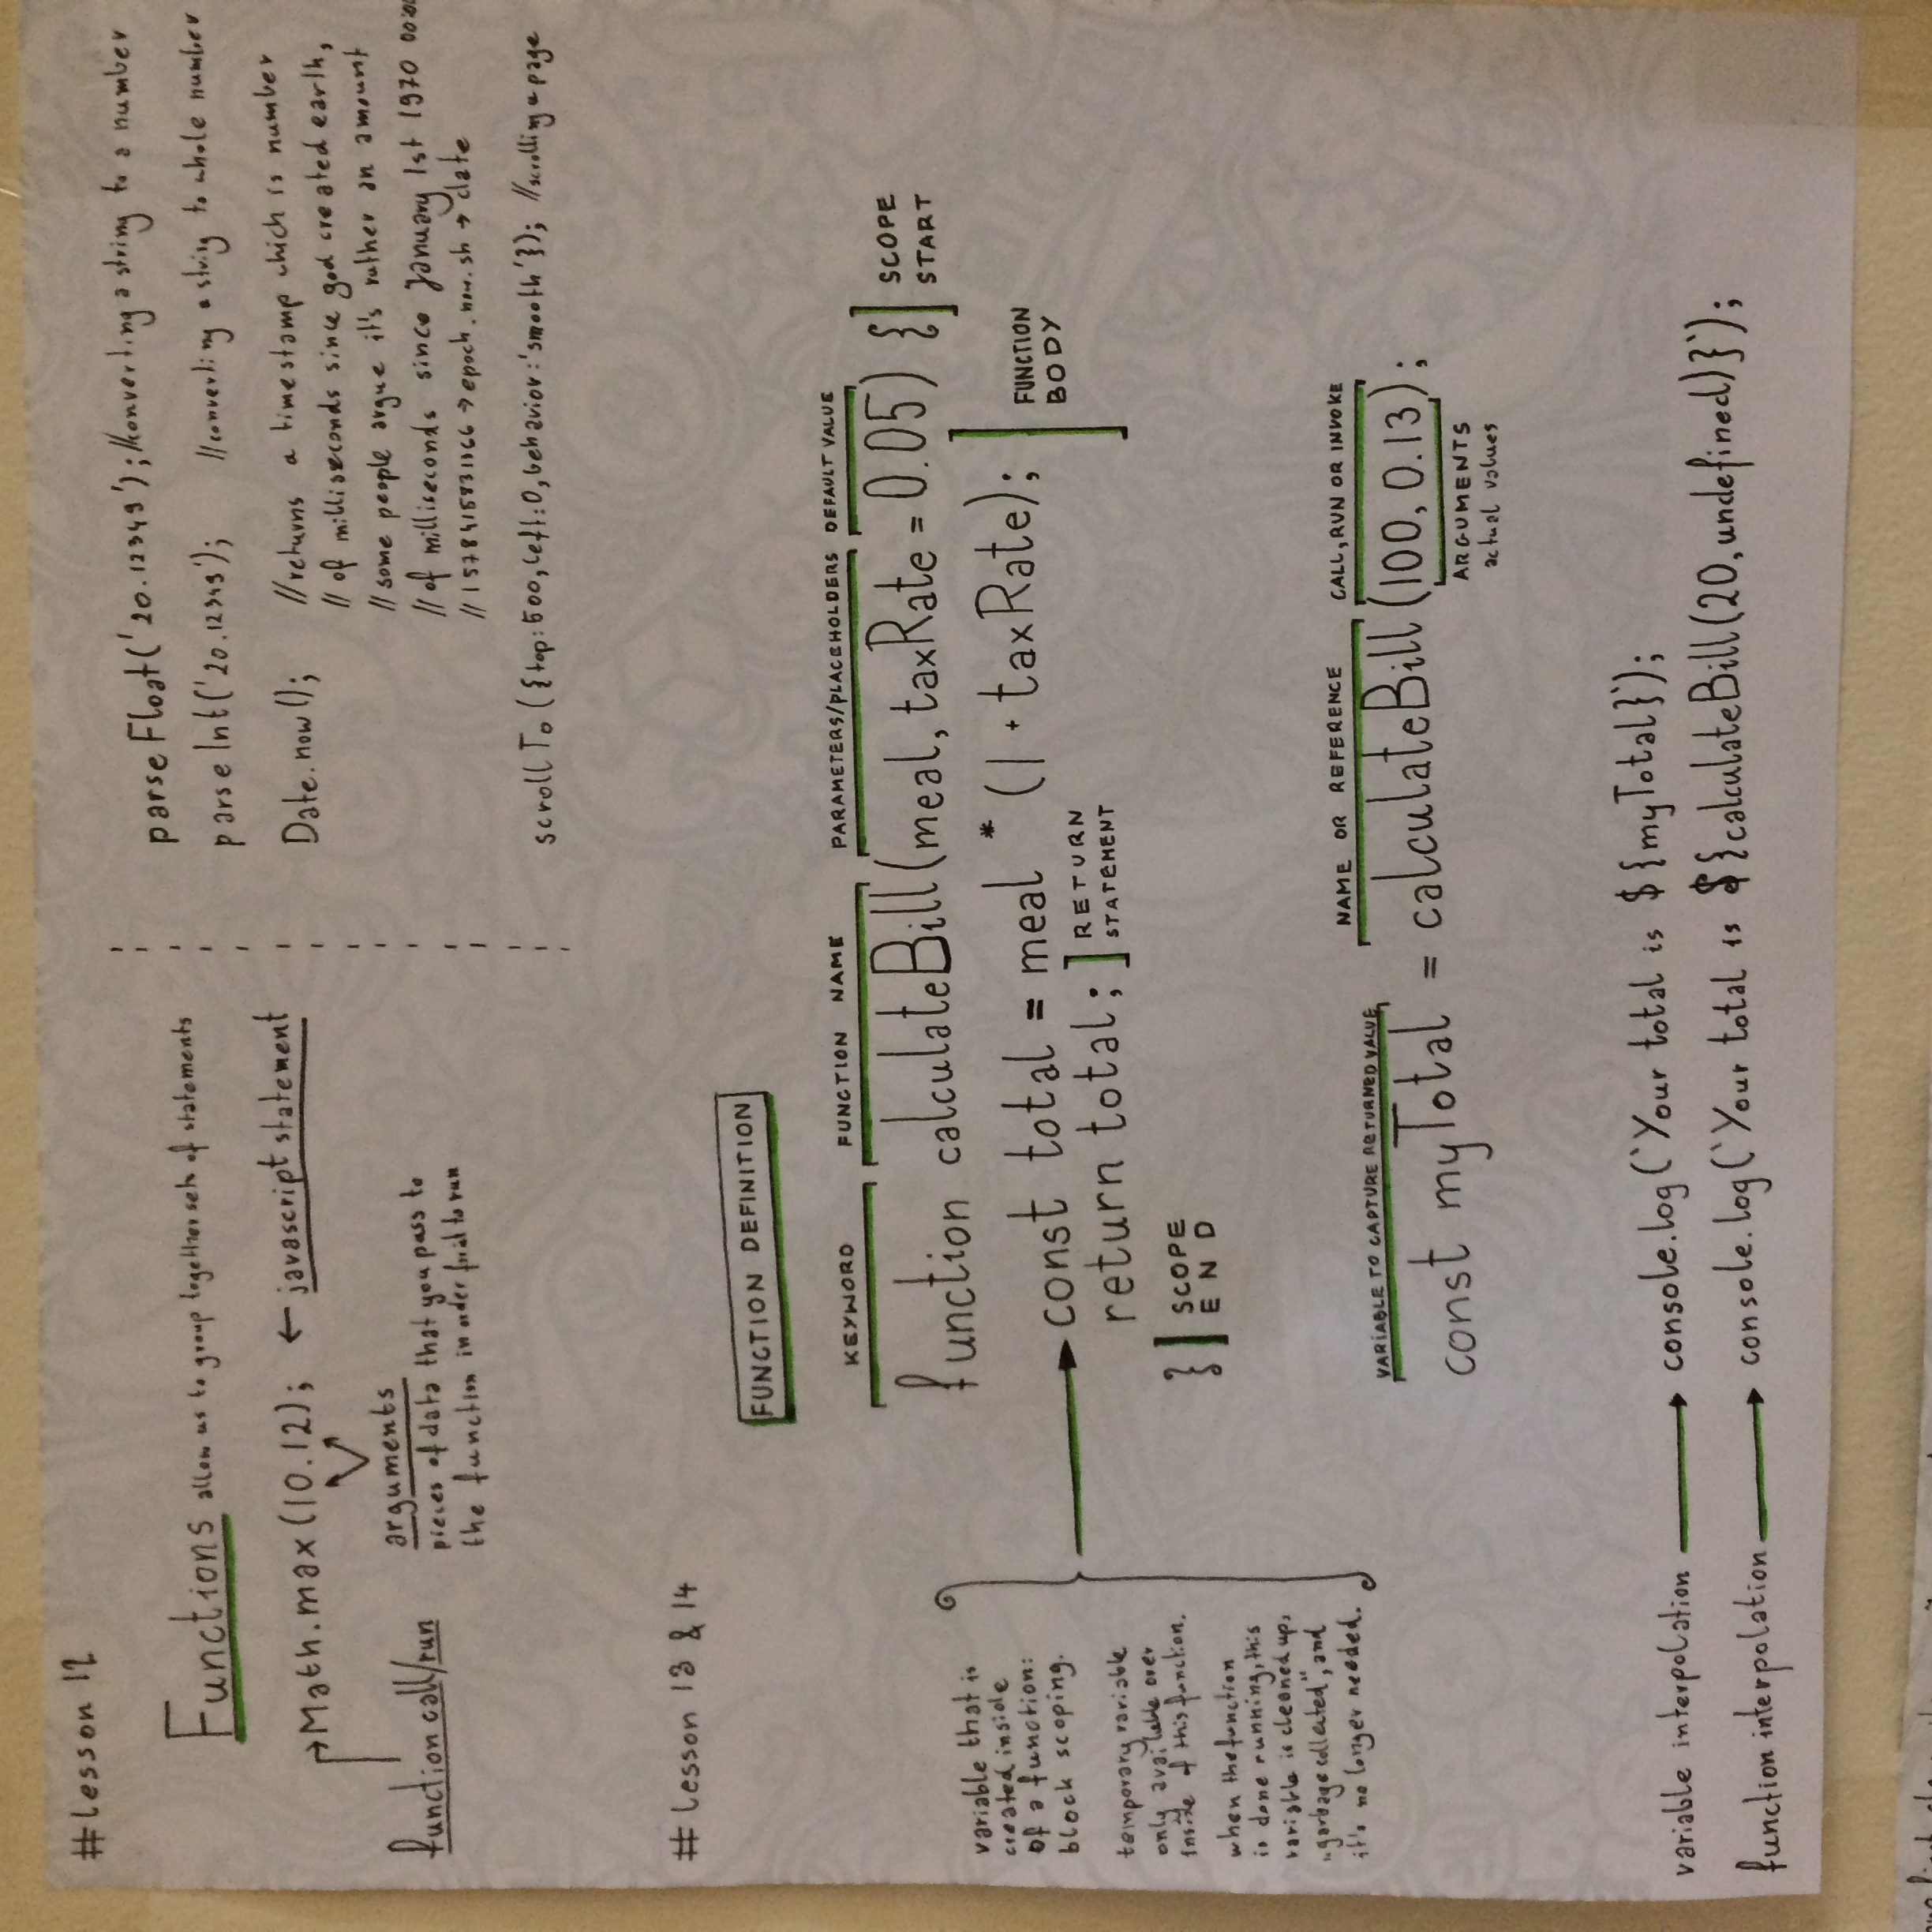 #lesson 12
Functions allow us to group together sets of statements
Math.max(10.12); ← javascript statement
function call/run
arguments
pieces of data that you pass to
the function in order for it to run
parseFloat('20.12349'); //converting a string to a number
parseInt('20.12349'); //converting a string to whole number
Date.now(); //returns a timestamp which is number
// of milliseconds since god created earth,
// some people argue it's rather an amount
// of milliseconds since January 1st 1970
// → epoch.now.sh → date
scrollTo({top:500,left:0,behavior:'smooth'}); //scrolling a page
# lesson 13 & 14
FUNCTION DEFINITION
KEYWORD FUNCTION NAME PARAMETERS/PLACEHOLDERS DEFAULT VALUE
function calculateBill(meal, taxRate = 0.05) {
SCOPE
START
const total = meal * (1 + taxRate);
FUNCTION
BODY
return total;
RETURN
STATEMENT
}
SCOPE
END
variable that is
created inside
of a function:
block scoping.
temporary variable
only available over
inside of this function.
when the function
is done running, this
variable is cleaned up,
„garbage collected", and
it's no longer needed.
VARIABLE TO CAPTURE RETURNED VALUE NAME OR REFERENCE CALL, RUN OR INVOKE
const myTotal = calculateBill(100, 0.13);
ARGUMENTS
actual values
variable interpolation → console.log(`Your total is ${myTotal}`);
function interpolation → console.log(`Your total is ${calculateBill(20, undefined)}`);